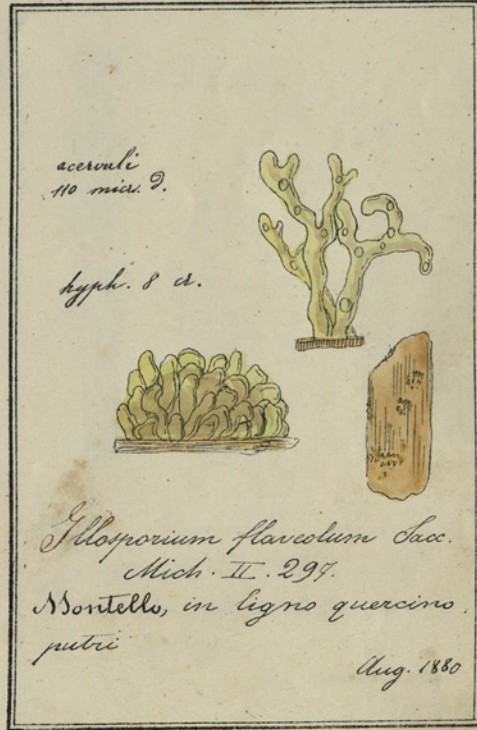 acervuli
110 micr. d.
hyph. 8 cr.
Illosporium flaveolum Sacc.
Mich. II. 297.
Montello, in ligno quercino
putri
Aug. 1880